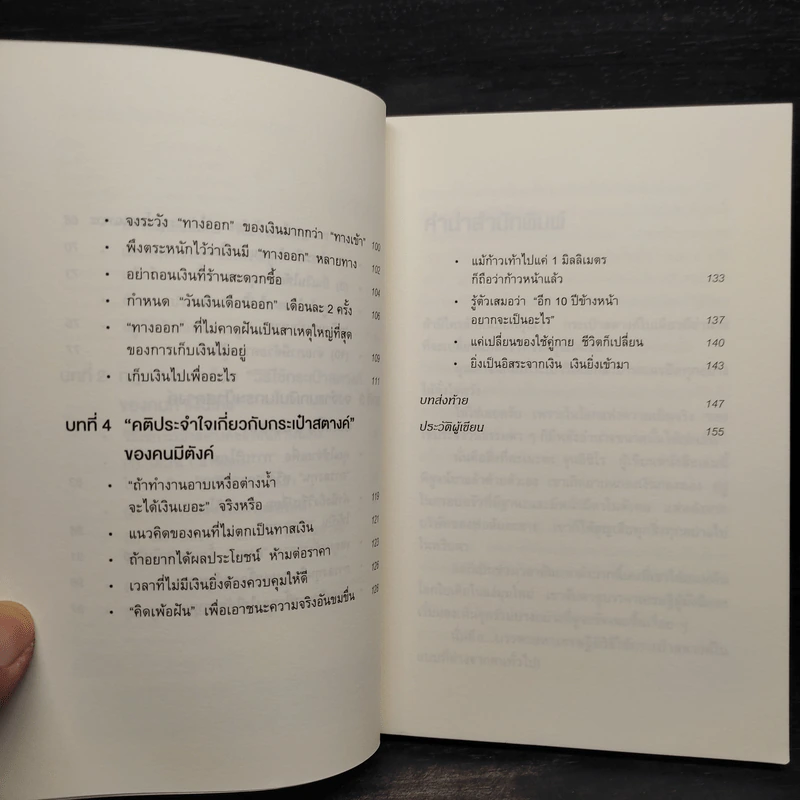 • จงระวัง "ทางออก" ของเงินมากกว่า "ทางเข้า" 100
• พึงตระหนักไว้ว่าเงินมี "ทางออก" หลายทาง 102
• อย่าถอนเงินที่ร้านสะดวกซื้อ 104
• กำหนด "วันเงินเดือนออก" เดือนละ 2 ครั้ง 106
• "ทางออก" ที่ไม่คาดฝันเป็นสาเหตุใหญ่ที่สุด
ของการเก็บเงินไม่อยู่ 109
• เก็บเงินไปเพื่ออะไร 111
บทที่ 4 "คติประจำใจเกี่ยวกับกระเป๋าสตางค์"
ของคนมีตังค์
• "ถ้าทำงานอาบเหงื่อต่างน้ำ
จะได้เงินเยอะ" จริงหรือ 119
• แนวคิดของคนที่ไม่ตกเป็นทาสเงิน 121
• ถ้าอยากได้ผลประโยชน์ ห้ามต่อราคา 123
• เวลาที่ไม่มีเงินยิ่งต้องควบคุมให้ดี 126
• "คิดเพ้อฝัน" เพื่อเอาชนะความจริงอันขมขื่น 128
• แม้ก้าวเท้าไปแค่ 1 มิลลิเมตร
ก็ถือว่าก้าวหน้าแล้ว 133
• รู้ตัวเสมอว่า "อีก 10 ปีข้างหน้า
อยากจะเป็นอะไร" 137
• แค่เปลี่ยนของใช้คู่กาย ชีวิตก็เปลี่ยน 140
• ยิ่งเป็นอิสระจากเงิน เงินยิ่งเข้ามา 143
บทส่งท้าย 147
ประวัติผู้เขียน 155